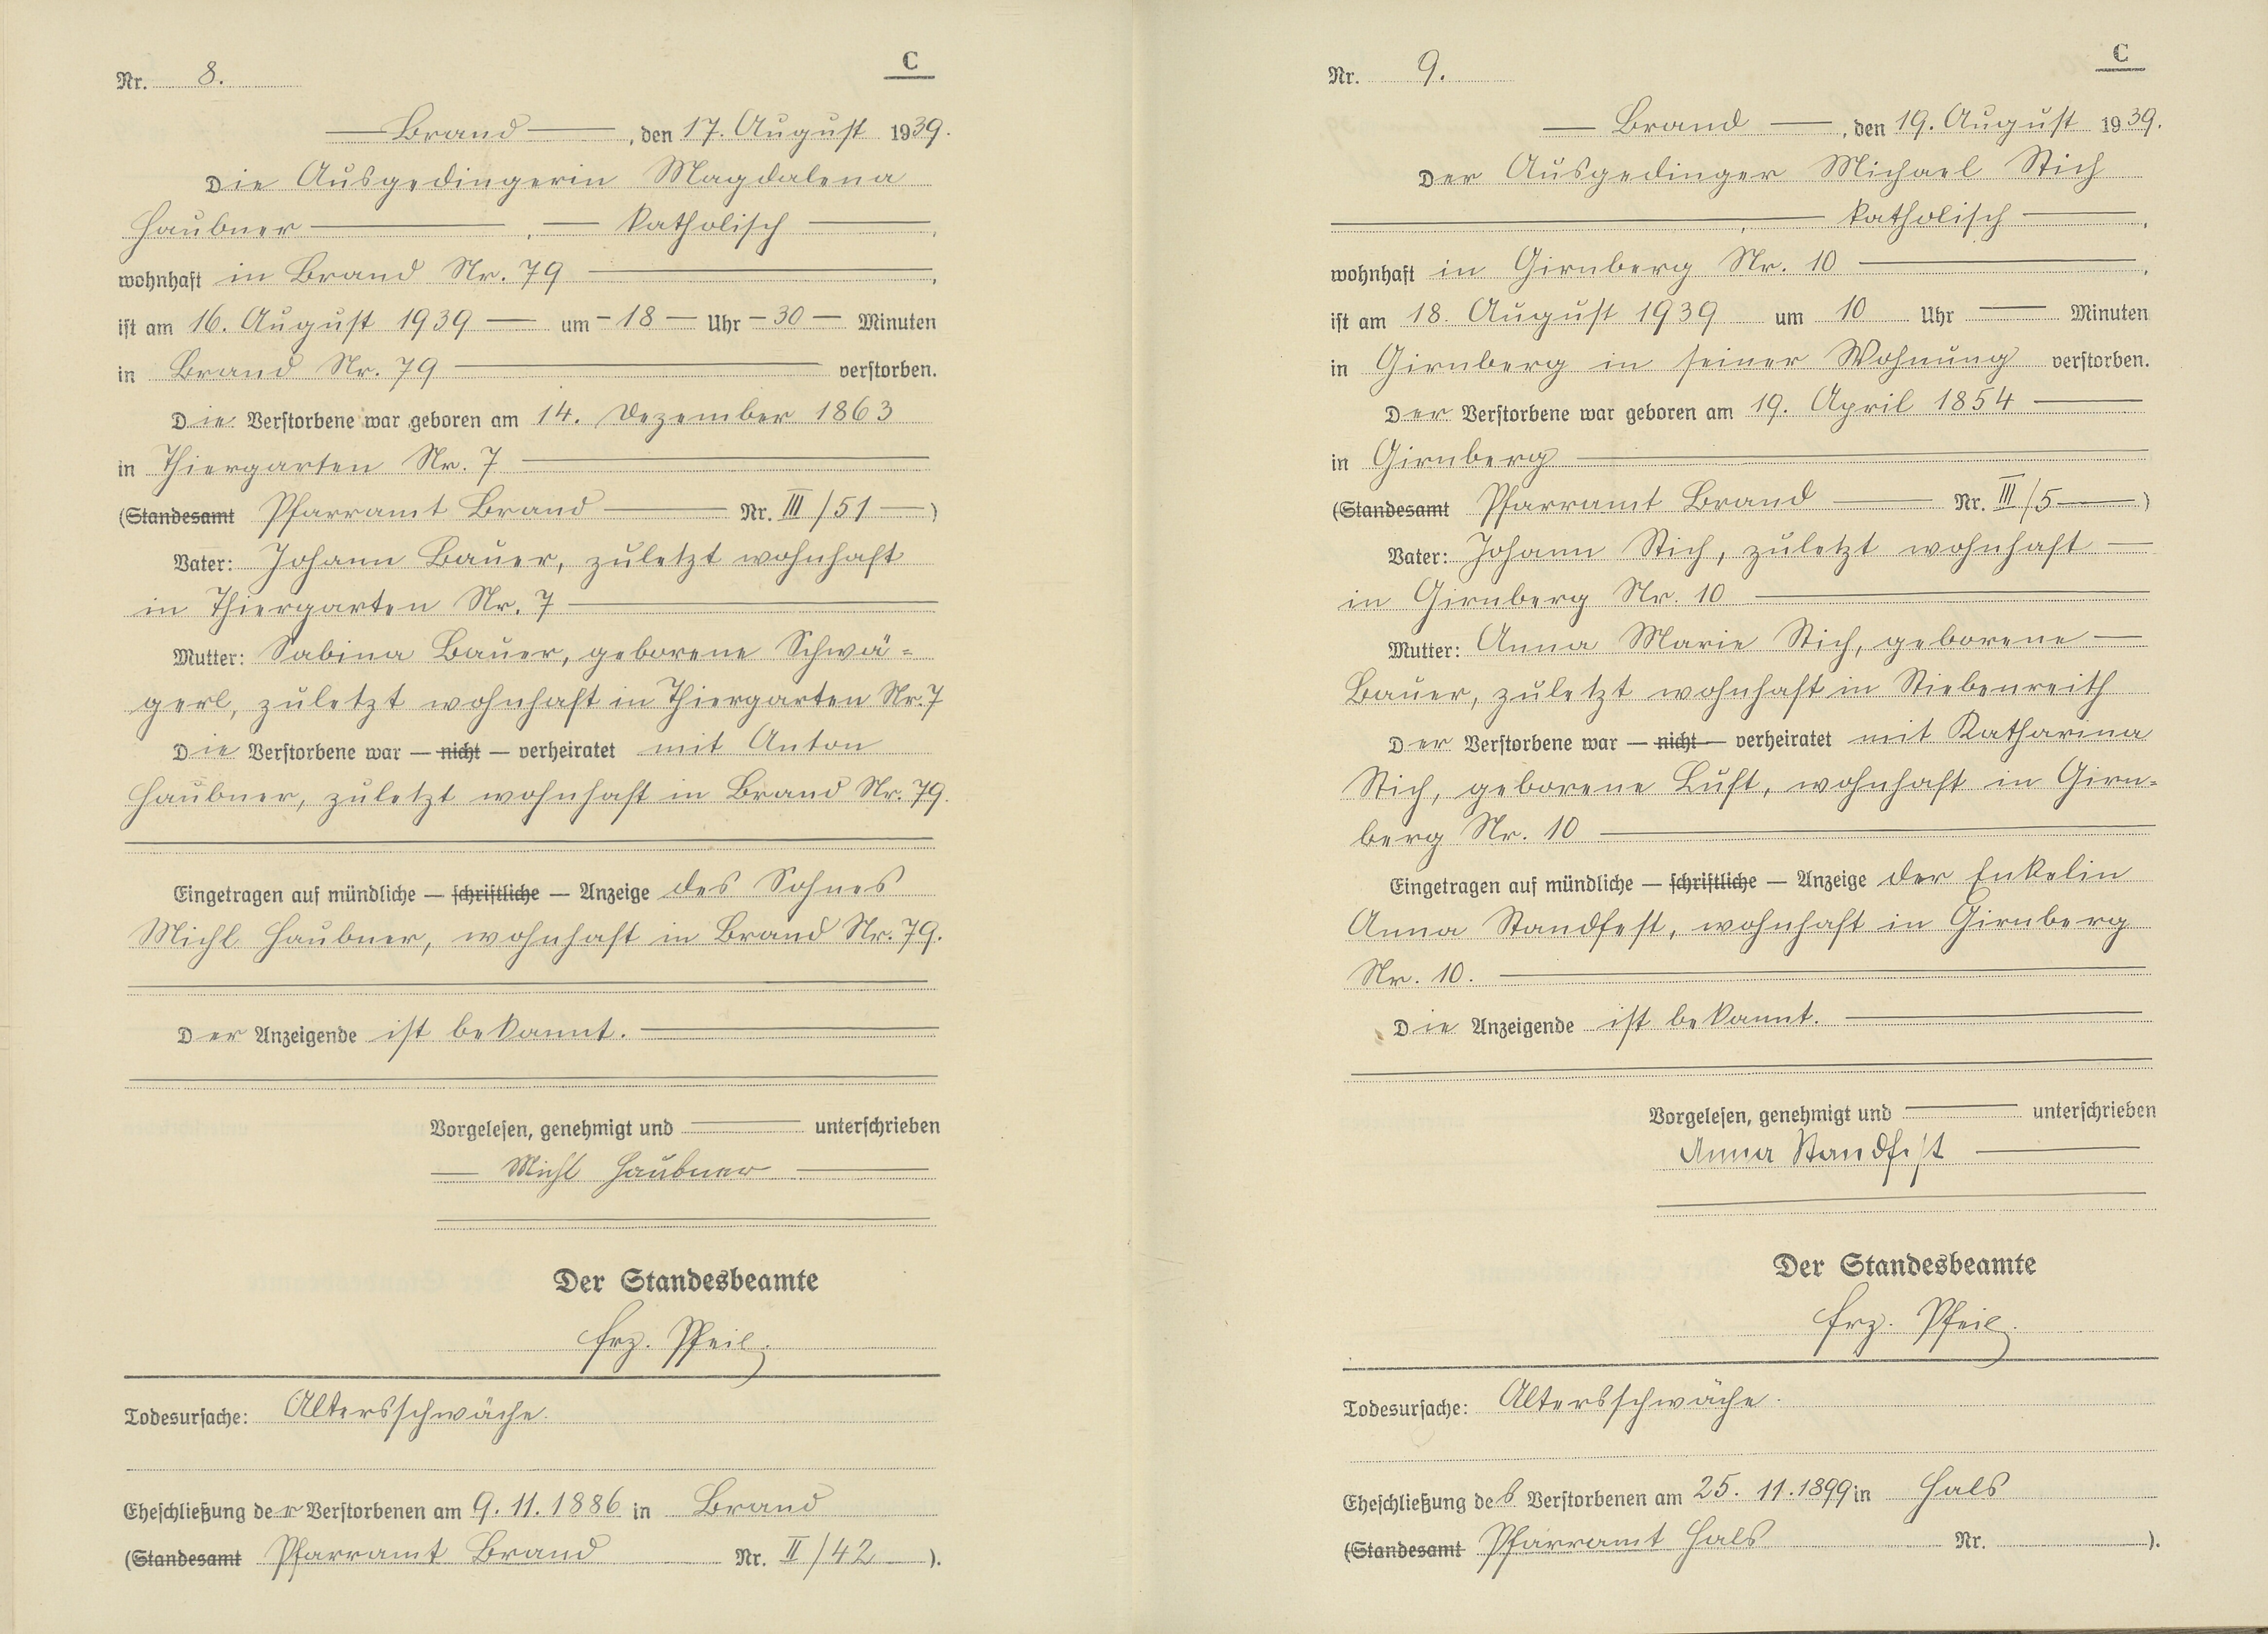 C
Nr. 8.
— Brand —, den 17. August 1939.
Die Ausgedingerin Magdalena
Haubner —, — katholisch —,
wohnhaft in Brand Nr. 79 —,
ist am 16. August 1939 — um — 18 — Uhr — 30 — Minuten
in Brand Nr. 79 — verstorben.
Die Verstorbene war geboren am 14. Dezember 1863
in Thiergarten Nr. 7 —
(Standesamt Pfarramt Brand — Nr. III/51 —)
Vater: Johann Bauer, zuletzt wohnhaft
in Thiergarten Nr. 7 —
Mutter: Sabina Bauer, geborene Schwä-
gerl, zuletzt wohnhaft in Thiergarten Nr. 7
Die Verstorbene war — nicht — verheiratet mit Anton
Haubner, zuletzt wohnhaft in Brand Nr. 79.
Eingetragen auf mündliche — schriftliche — Anzeige des Sohnes
Michl Haubner, wohnhaft in Brand Nr. 79.
Der Anzeigende ist bekannt. —
Vorgelesen, genehmigt und — unterschrieben
— Michl Haubner —
Der Standesbeamte
Frz. Pfeil.
Todesursache: Altersschwäche.
Eheschließung der Verstorbenen am 9.11.1886 in Brand
(Standesamt Pfarramt Brand Nr. II/42 —).
C
Nr. 9.
— Brand —, den 19. August 1939.
Der Ausgedinger Michael Stich
—, — katholisch —,
wohnhaft in Girnberg Nr. 10 —,
ist am 18. August 1939 um 10 Uhr — Minuten
in Girnberg in seiner Wohnung verstorben.
Der Verstorbene war geboren am 19. April 1854 —
in Girnberg —
(Standesamt Pfarramt Brand — Nr. III/5 —)
Vater: Johann Stich, zuletzt wohnhaft —
in Girnberg Nr. 10 —
Mutter: Anna Marie Stich, geborene —
Bauer, zuletzt wohnhaft in Stiebenreith
Der Verstorbene war — nicht — verheiratet mit Katharina
Stich, geborene Luft, wohnhaft in Girn-
berg Nr. 10 —
Eingetragen auf mündliche — schriftliche — Anzeige der Enkelin
Anna Standfest, wohnhaft in Girnberg
Nr. 10. —
Die Anzeigende ist bekannt. —
Vorgelesen, genehmigt und — unterschrieben
Anna Standfest —
Der Standesbeamte
Frz. Pfeil.
Todesursache: Altersschwäche.
Eheschließung des Verstorbenen am 25.11.1899 in Hals
(Standesamt Pfarramt Hals Nr. ).